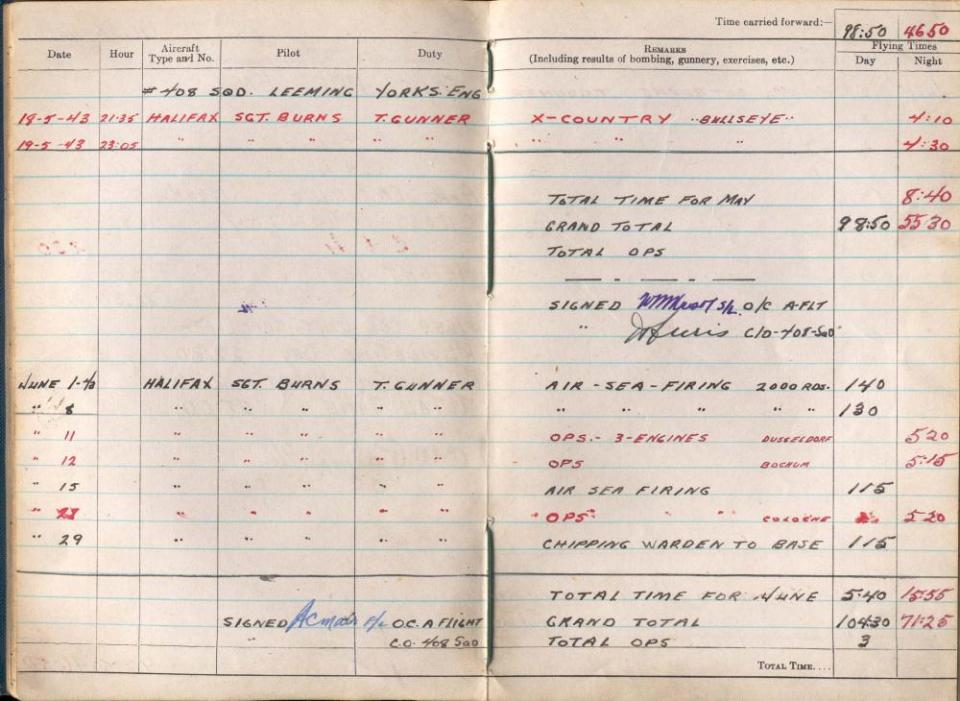 Time carried forward:— 98:50 46 50
Date Hour Aircraft Type and No. Pilot Duty REMARKS (Including results of bombing, gunnery, exercises, etc.) Flying Times Day Night
#408 SQD. LEEMING YORKS. ENG
18-5-43 21:35 HALIFAX SGT. BURNS T. GUNNER X-COUNTRY "BULLSEYE" 4:10
19-5-43 23:05 " " " " " " " " 4:30
TOTAL TIME FOR MAY 8:40
GRAND TOTAL 98:50 55 30
TOTAL OPS
SIGNED S/L. O/C A-FLT
" C/O-408-SQD
JUNE 1-43 HALIFAX SGT. BURNS T. GUNNER AIR-SEA-FIRING 2000 RDS. 1 40
" 8 " " " " " " " " " " 1 30
" 11 " " " " " OPS.- 3-ENGINES DUSSELDORF 5 20
" 12 " " " " " OPS BOCHUM 5:15
" 15 " " " " " AIR SEA FIRING 1 15
" 28 " " " " " "OPS" " " COLOGNE 5 20
" 29 " " " " " CHIPPING WARDEN TO BASE 1 15
TOTAL TIME FOR JUNE 5:40 15:55
SIGNED O.C. A FLIGHT GRAND TOTAL 104:30 71:25
" C.O. 408 SQD TOTAL OPS 3
TOTAL TIME....